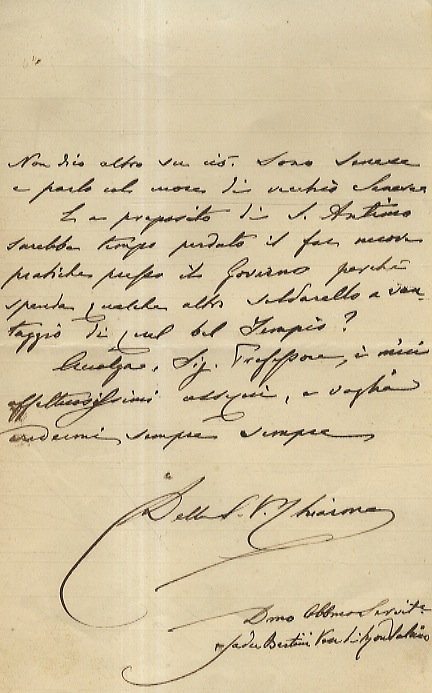 Non dico altro su ciò. Sono Senese
e parlo col cuore di vecchio Senese
E a proposito di S. Antimo
sarebbe tempo perduto il far nuove
pratiche presso il Governo perchè
spenda qualche altro soldarello a van-
taggio di quel bel Tempio?
Accolga, Sig. Professore, i miei
affettuosissimi ossequi, e voglia
credermi sempre sempre
Della S. V. Chiarma
Dmo Obbmo Servite